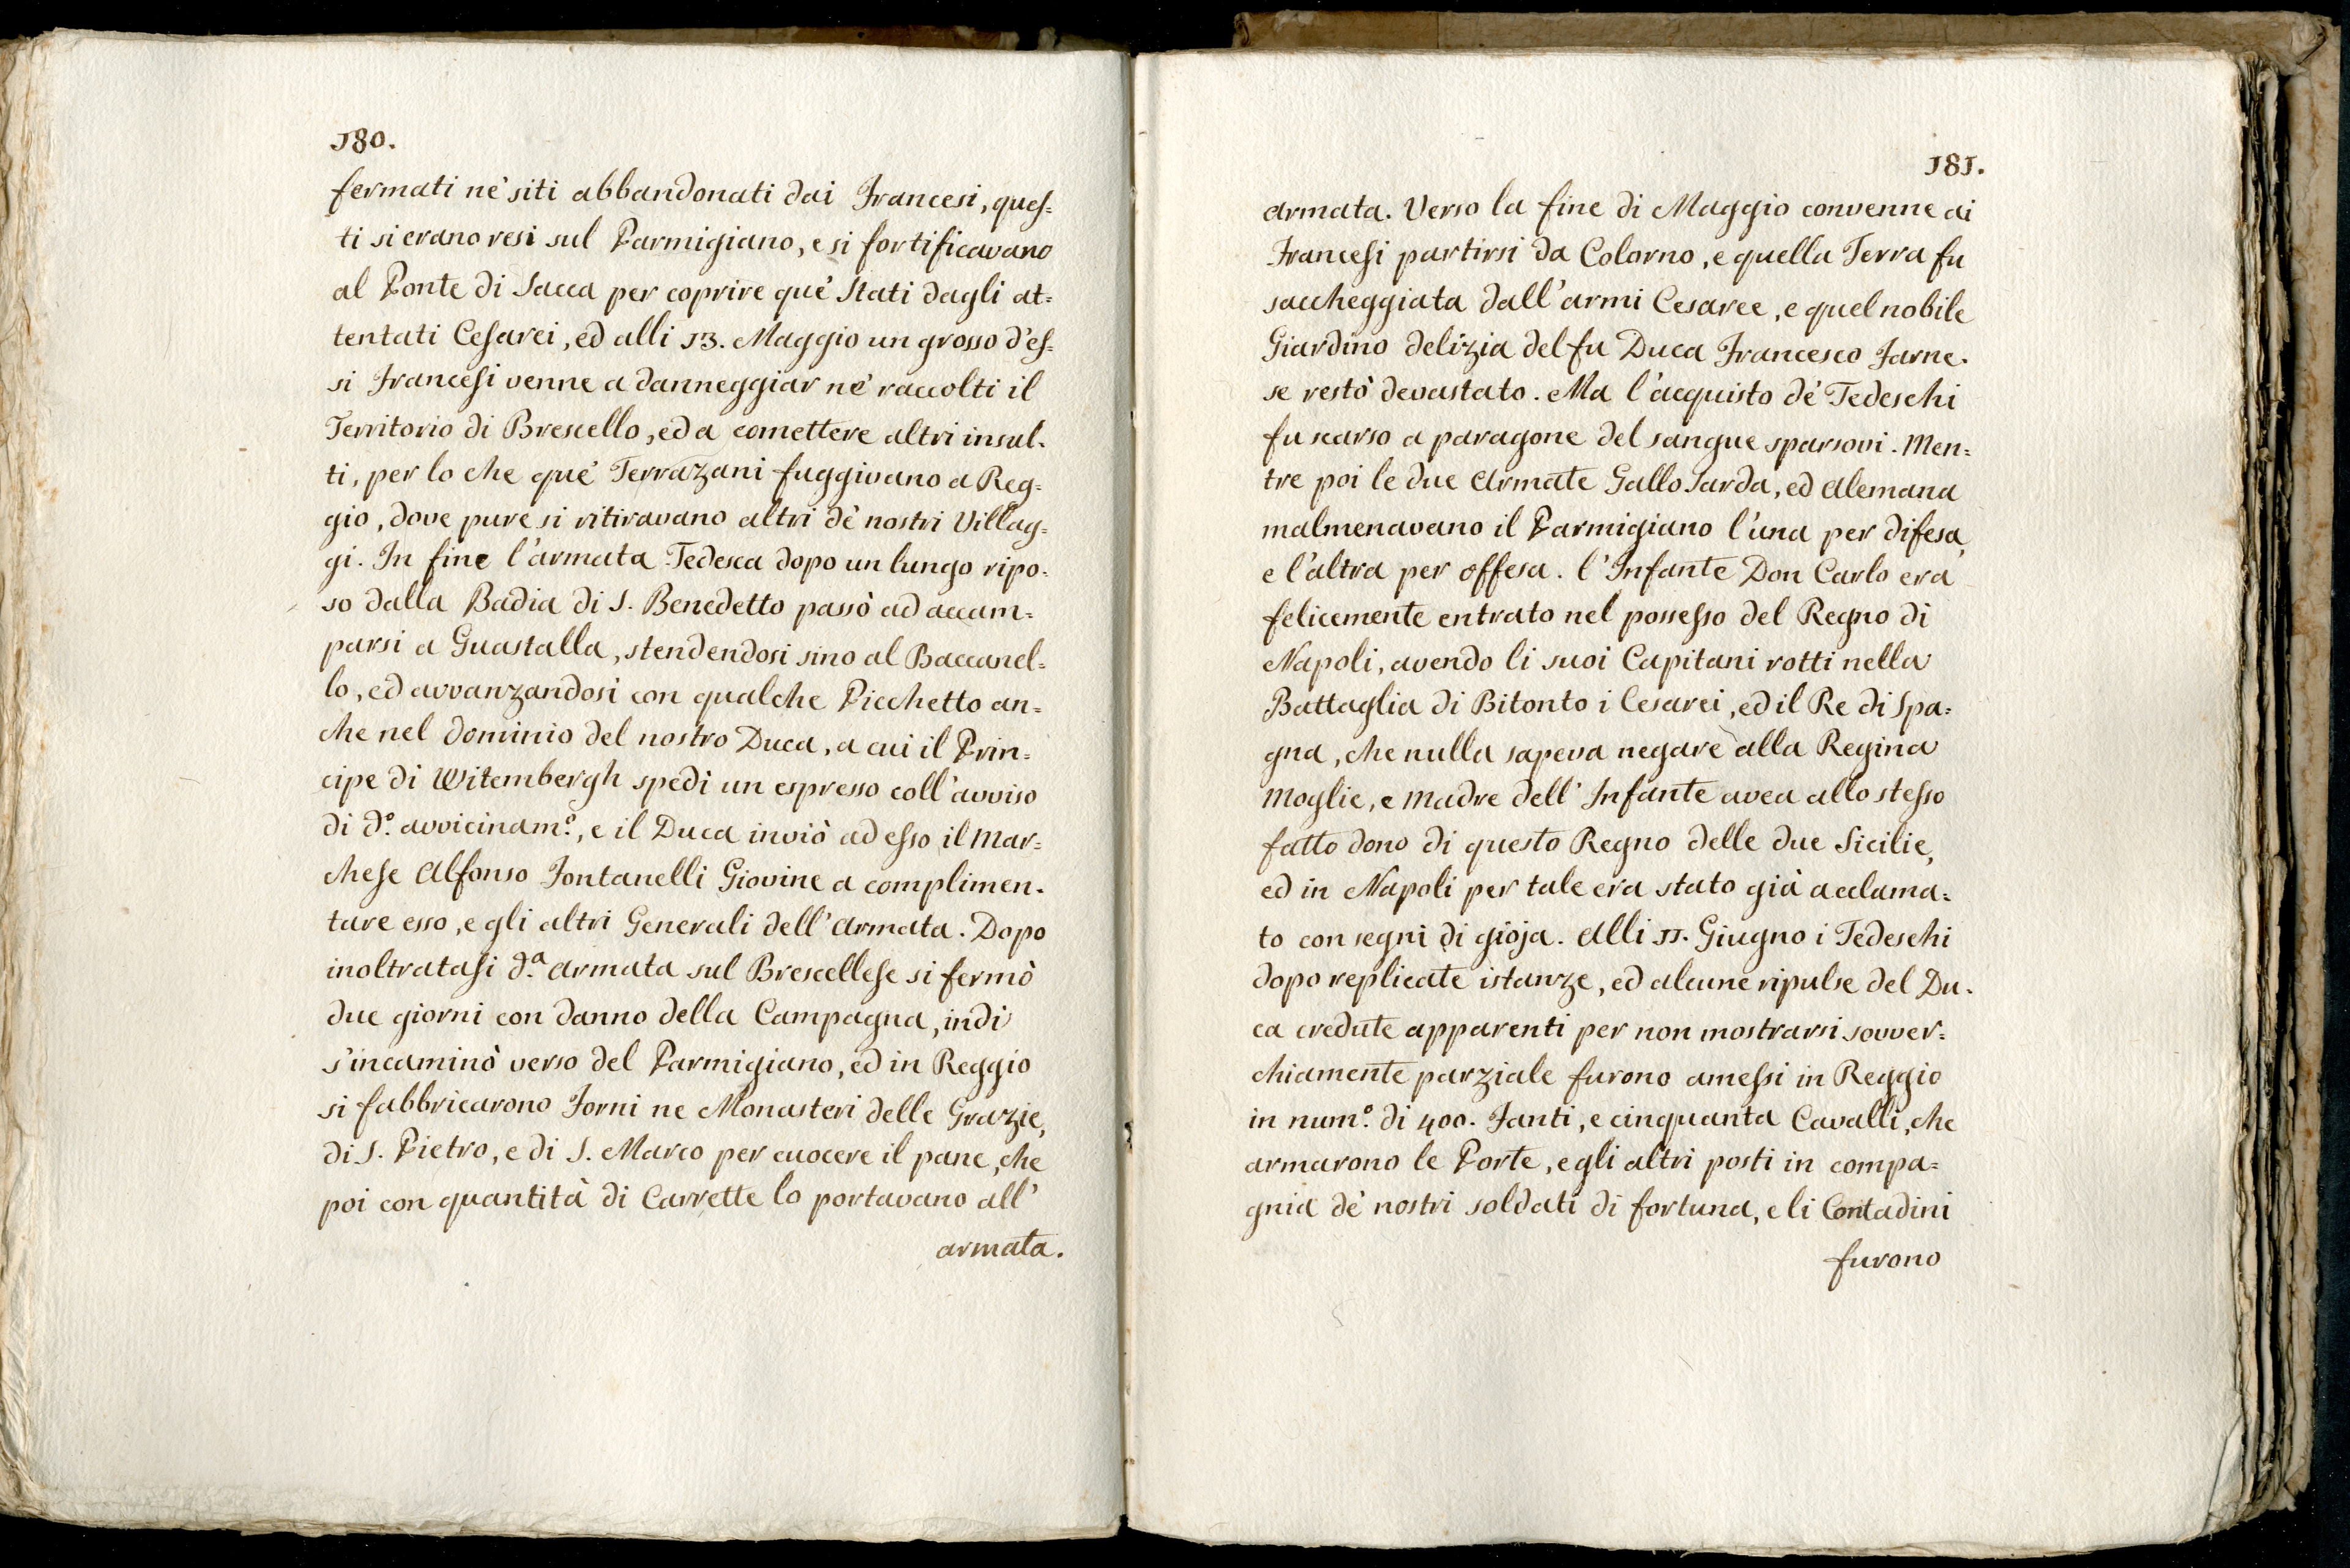 180.
fermati nè siti abbandonati dai Francesi, ques-
ti si erano resi sul Parmigiano, e si fortificavano
al Ponte di Sacca per coprire què Stati dagli at=
tentati Cesarei, ed alli 13. Maggio un grosso d'es-
si Francesi venne a danneggiar nè raccolti il
Territorio di Brescello, ed a comettere altri insul-
ti, per lo che què Terrazani fuggivano a Reg=
gio, dove pure si ritiravano altri dè nostri Villag=
gi. In fine l'armata Tedesca dopo un lungo ripo=
so dalla Badia di S. Benedetto passò ad accam=
parsi a Guastalla, stendendosi sino al Baccanel=
lo, ed avvanzandosi con qualche Picchetto an=
che nel dominio del nostro Duca, a cui il Prin=
cipe di Witembergh spedì un espresso coll'avviso
di d.º avvicinam.º, e il Duca inviò ad esso il Mar=
chese Alfonso Fontanelli Giovine a complimen-
tare esso, e gli altri Generali dell'Armata. Dopo
inoltratasi d.ª Armata sul Brescellese si fermò
due giorni con danno della Campagna, indi
s'incaminò verso del Parmigiano, ed in Reggio
si fabbricarono Forni ne Monasteri delle Grazie,
di S. Pietro, e di S. Marco per cuocere il pane, che
poi con quantità di Carrette lo portavano all'
armata.
181.
armata. Verso la fine di Maggio convenne ai
Francesi partirsi da Colorno, e quella Terra fu
saccheggiata dall'armi Cesaree, e quel nobile
Giardino delizia del fu Duca Francesco Farne-
se restò devastato. Ma l'acquisto dè Tedeschi
fu scarso a paragone del sangue sparsovi. Men=
tre poi le due Armate Gallo Sarda, ed Alemana
malmenavano il Parmigiano l'una per difesa,
e l'altra per offesa. l'Infante Don Carlo era
felicemente entrato nel possesso del Regno di
Napoli, avendo li suoi Capitani rotti nella
Battaglia di Bitonto i Cesarei, ed il Re di Spa=
gna, che nulla sapeva negare alla Regina
Moglie, e Madre dell'Infante avea allo stesso
fatto dono di questo Regno delle due Sicilie,
ed in Napoli per tale era stato già acclama=
to con segni di gioja. Alli 11. Giugno i Tedeschi
dopo replicate istanze, ed alcune ripulse del Du-
ca credute apparenti per non mostrarsi sovver=
chiamente parziale furono amessi in Reggio
in num.º di 400. Fanti, e cinquanta Cavalli, che
armarono le Porte, e gli altri posti in compa=
gnia dè nostri soldati di fortuna, e li Contadini
furono